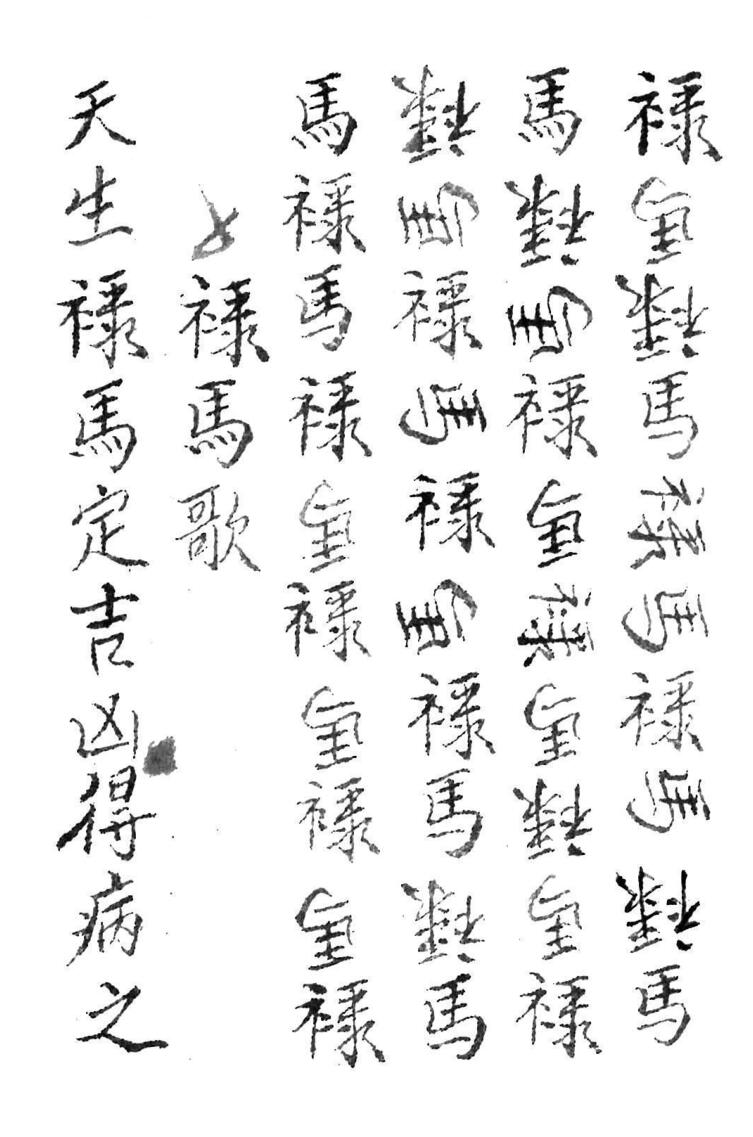 禄馬禄馬禄馬禄馬禄馬
馬禄馬禄馬禄馬禄馬禄
禄馬禄馬禄馬禄馬禄馬
馬禄馬禄馬禄馬禄馬禄
禄馬歌
天生禄馬定吉凶得病之